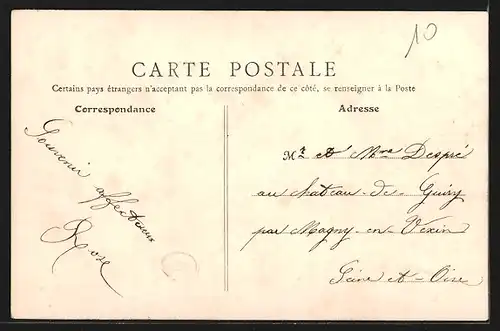 10
CARTE POSTALE
Certains pays étrangers n'acceptant pas la correspondance de ce côté, se renseigner à la Poste
Correspondance
Adresse
Souvenir
affectueux
Rose
Mr et Mme Despré
au chateau-de-Guiry
par Magny-en-Vexin
Seine-et-Oise